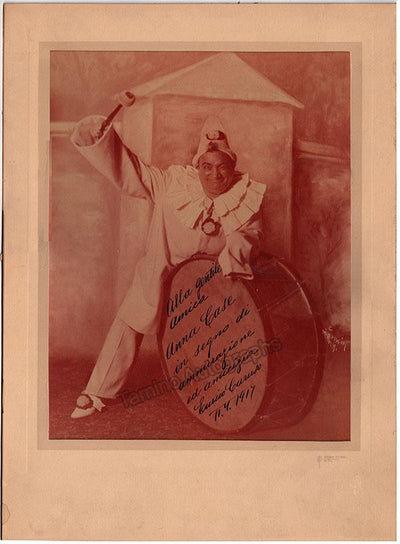 Alla gentile
amica
Anna Case
in segno di
ammirazione
ed amicizia
Enrico Caruso
N.Y. 1917
tamino Autographs